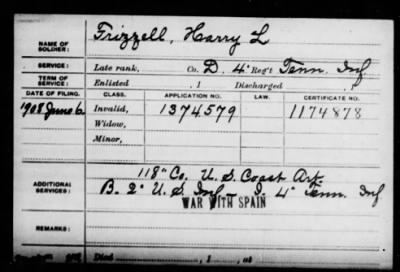 NAME OF SOLDIER: Frizzell, Harry L
SERVICE: Late rank, Co. D, 4" Reg't Tenn. Inf.
TERM OF SERVICE: Enlisted , 1 Discharged , 1
DATE OF FILING. CLASS. APPLICATION NO. LAW. CERTIFICATE NO.
1908 June 6 Invalid, 1374579 1174878
Widow,
Minor,
ADDITIONAL SERVICES: 118" Co. U. S. Coast Art.
B. 2" U. S. Inf - I. 4" Tenn. Inf
WAR WITH SPAIN
Died , 1 , at